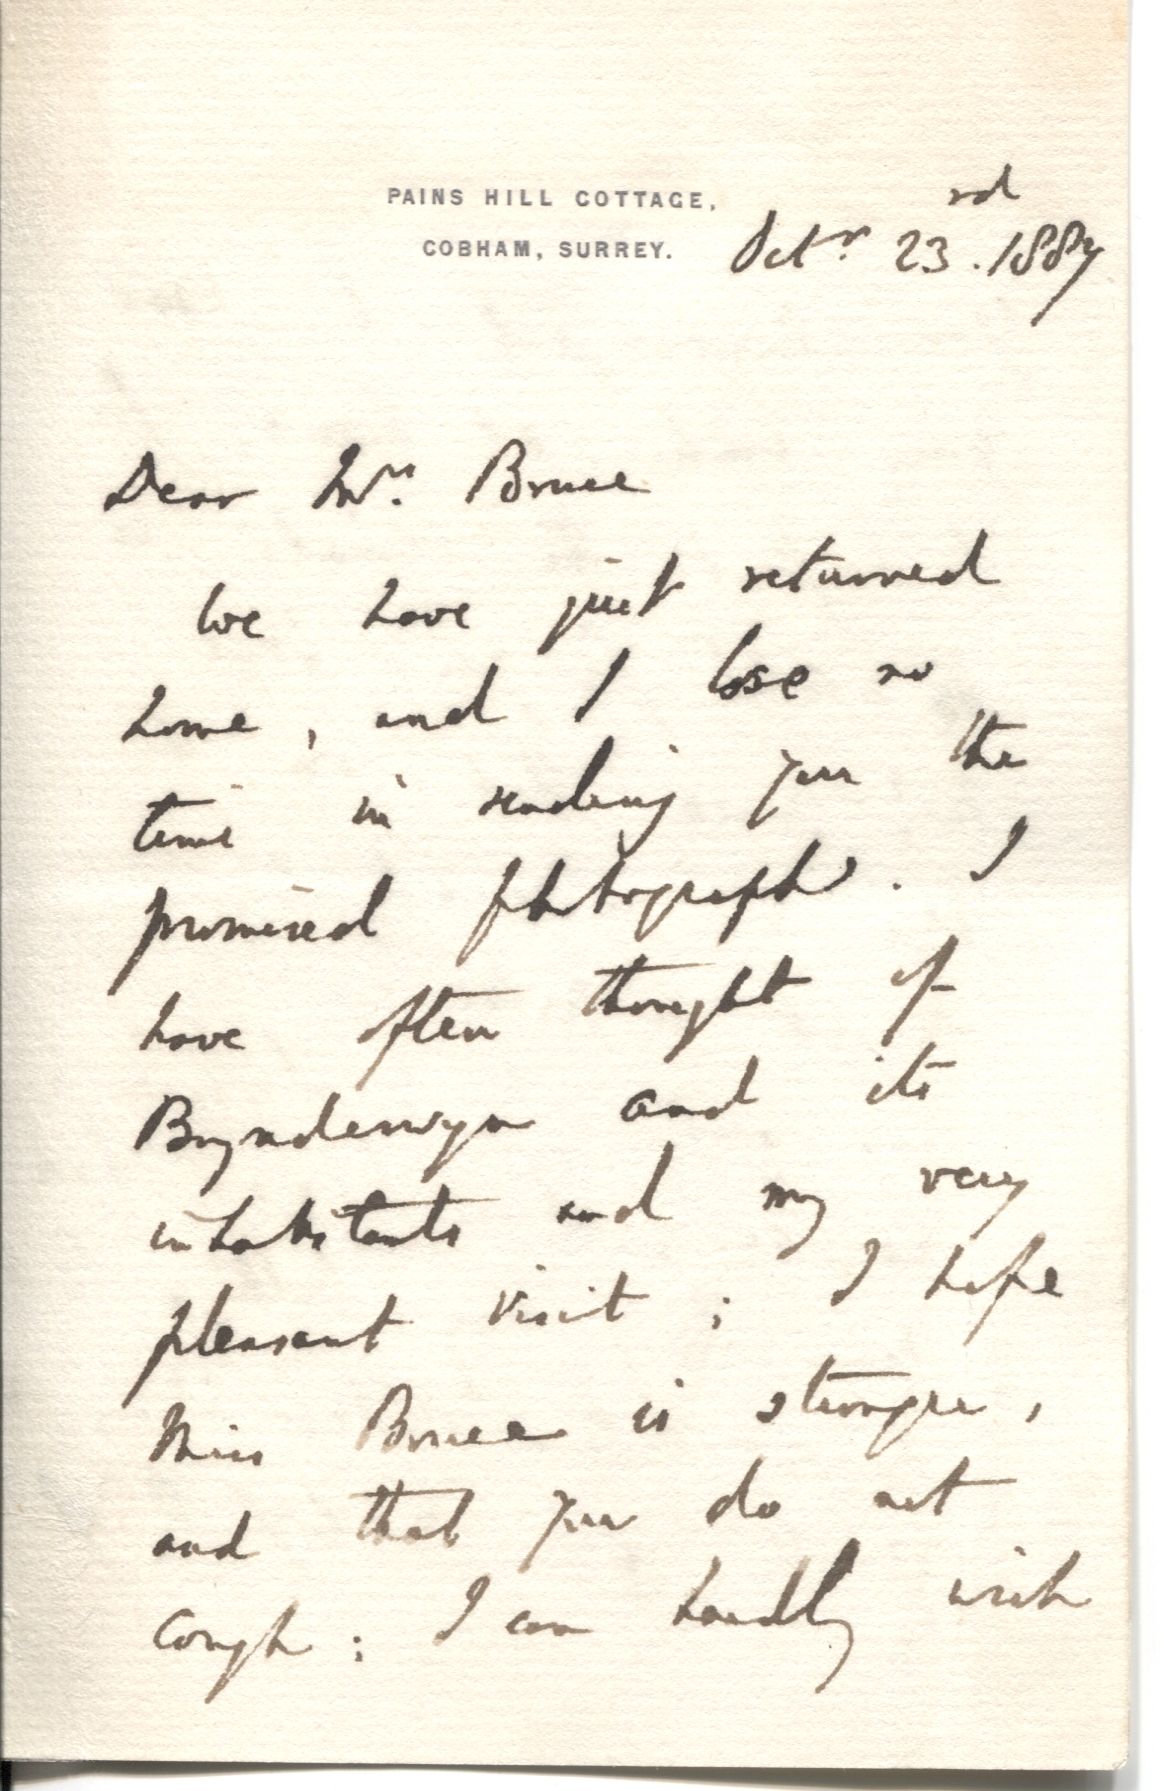 PAINS HILL COTTAGE,
COBHAM, SURREY.
Octr. 23rd. 1887
Dear Mrs. Bruce
We have just returned
home, and I lose no
time in sending you the
promised photographs. I
have often thought of
Brynderwyn and its
inhabitants and my very
pleasant visit; I hope
Miss Bruce is stronger,
and that you do not
cough; I can hardly wish